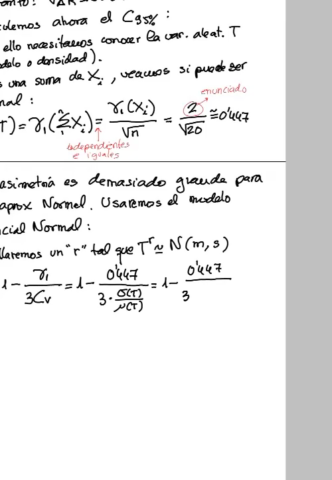 demos ahora el C95% :
ello necesitamos conocer la var. aleat. T
delo o densidad).
s una suma de Xi , veamos si puede ser
mal :
enunciado
T) = γ1(ΣXi) = γ1(Xi)/√n = 2/√20 ≅ 0'447
independientes
e iguales
asimetría es demasiado grande para
aprox Normal. Usaremos el modelo
ncial Normal :
llaremos un "r" tal que T^r ≈ N(m, s)
1 - γ1/3Cv = 1 - 0'447/(3·σ(T)/μ(T)) = 1 - 0'447/3